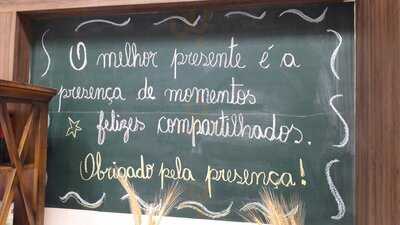 O melhor presente é a
presença de momentos
felizes compartilhados.
Obrigado pela presença!